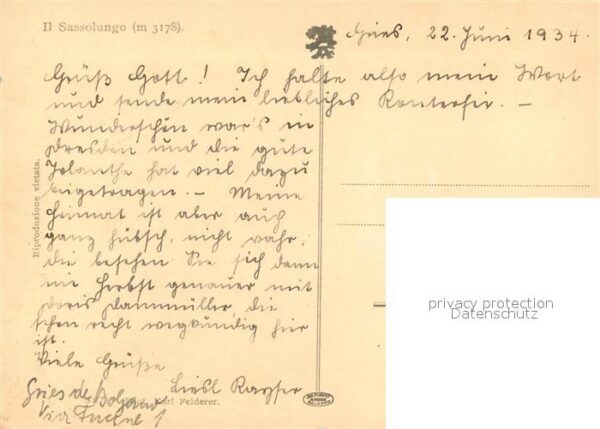 Il Sassolungo (m 3178).
Gries, 22. Juni 1934.
Grüß Gott! Ich halte also mein Wort
und sende mein liebliches Konterfei. –
Wunderschön war's in
Dresden und die gute
Jolanthe hat viel dazu
beigetragen. – Meine
Heimat ist aber auch
ganz hübsch, nicht wahr,
die besehen Sie sich dann
im Herbst genauer mit
Doris Dammüller, die
schon recht wegkundig hier
ist.
Viele Grüße
Liesl Kayser
Gries de Bolzano
Via
Karl Felderer.
Riproduzione vietata.
privacy protection
Datenschutz